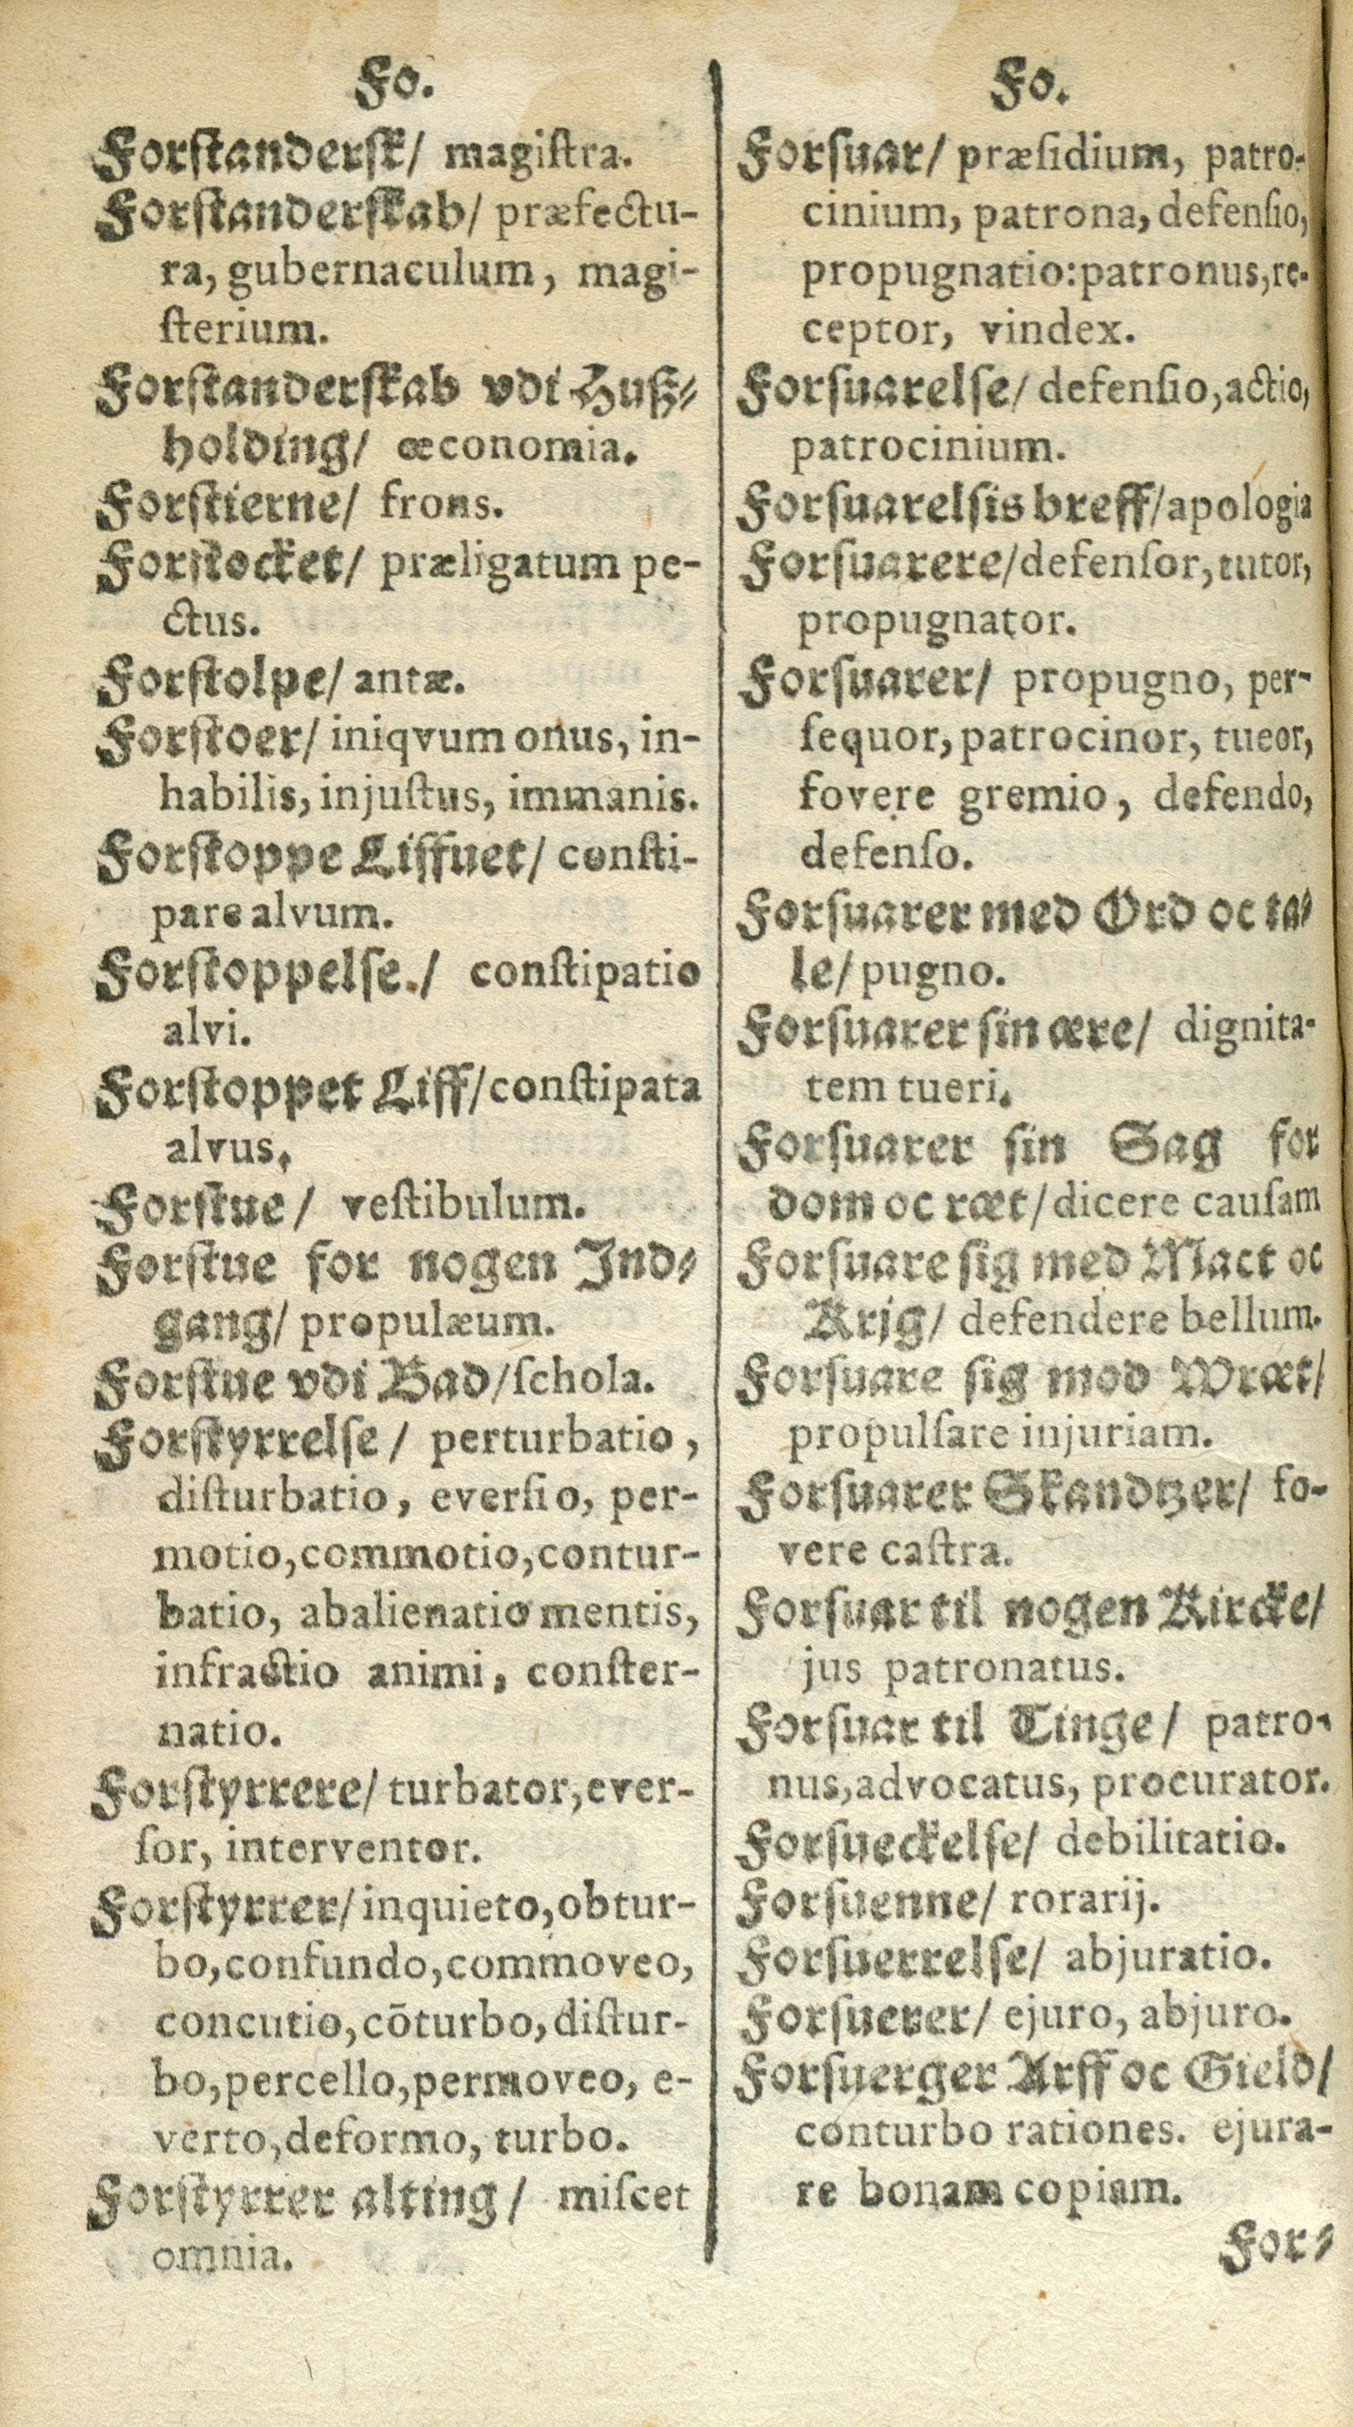 Fo.
Forstandersk/ magiſtra.
Forſtanderſkab/ præfectu-
ra, gubernaculum, magi-
ſterium.
Forſtanderſkab vdi Huß-
holding/ œconomia.
Forſtierne/ frons.
Forſtocket/ præligatum pe-
ctus.
Forſtolpe/ antæ.
Forſtoer/ iniqvum onus, in-
habilis, injuſtus, immanis.
Forſtoppe Liffuet/ conſti-
pare alvum.
Forſtoppelſe./ conſtipatio
alvi.
Forſtoppet Liff/conſtipata
alvus.
Forſtue/ veſtibulum.
Forſtue for nogen Ind-
gang/ propulæum.
Forſtue vdi Bad/ſchola.
Forſtyrrelſe/ perturbatio,
diſturbatio, everſio, per-
motio, commotio, contur-
batio, abalienatio mentis,
infractio animi, conſter-
natio.
Forſtyrrere/ turbator, ever-
ſor, interventor.
Forſtyrrer/ inquieto, obtur-
bo, confundo, commoveo,
concutio, cõturbo, diſtur-
bo, percello, permoveo, e-
verto, deformo, turbo.
Forſtyrrer alting/ miſcet
omnia.
Fo.
Forſuar/ præſidium, patro-
cinium, patrona, defenſio,
propugnatio: patronus, re-
ceptor, vindex.
Forſuarelſe/ defenſio, actio,
patrocinium.
Forſuarelſis breff/apologia
Forſuarere/defenſor, tutor,
propugnator.
Forſuarer/ propugno, per-
ſequor, patrocinor, tueor,
fovere gremio, defendo,
defenſo.
Forſuarer med Ord oc ta-
le/ pugno.
Forſuarer ſin ære/ dignita-
tem tueri.
Forſuarer ſin Sag for
dom oc ræt/ dicere cauſam
Forſuare ſig med Mact oc
Krig/ defendere bellum.
Forſuare ſig mod Wræt/
propulſare injuriam.
Forſuarer Skandtzer/ fo-
vere caſtra.
Forſuar til nogen Kircke/
jus patronatus.
Forſuar til Tinge/ patro-
nus, advocatus, procurator.
Forſueckelſe/ debilitatio.
Forſuenne/ rorarij.
Forſuerrelſe/ abjuratio.
Forſuerer/ ejuro, abjuro.
Forſuerger Arff oc Gield/
conturbo rationes. ejura-
re bonam copiam.
For-